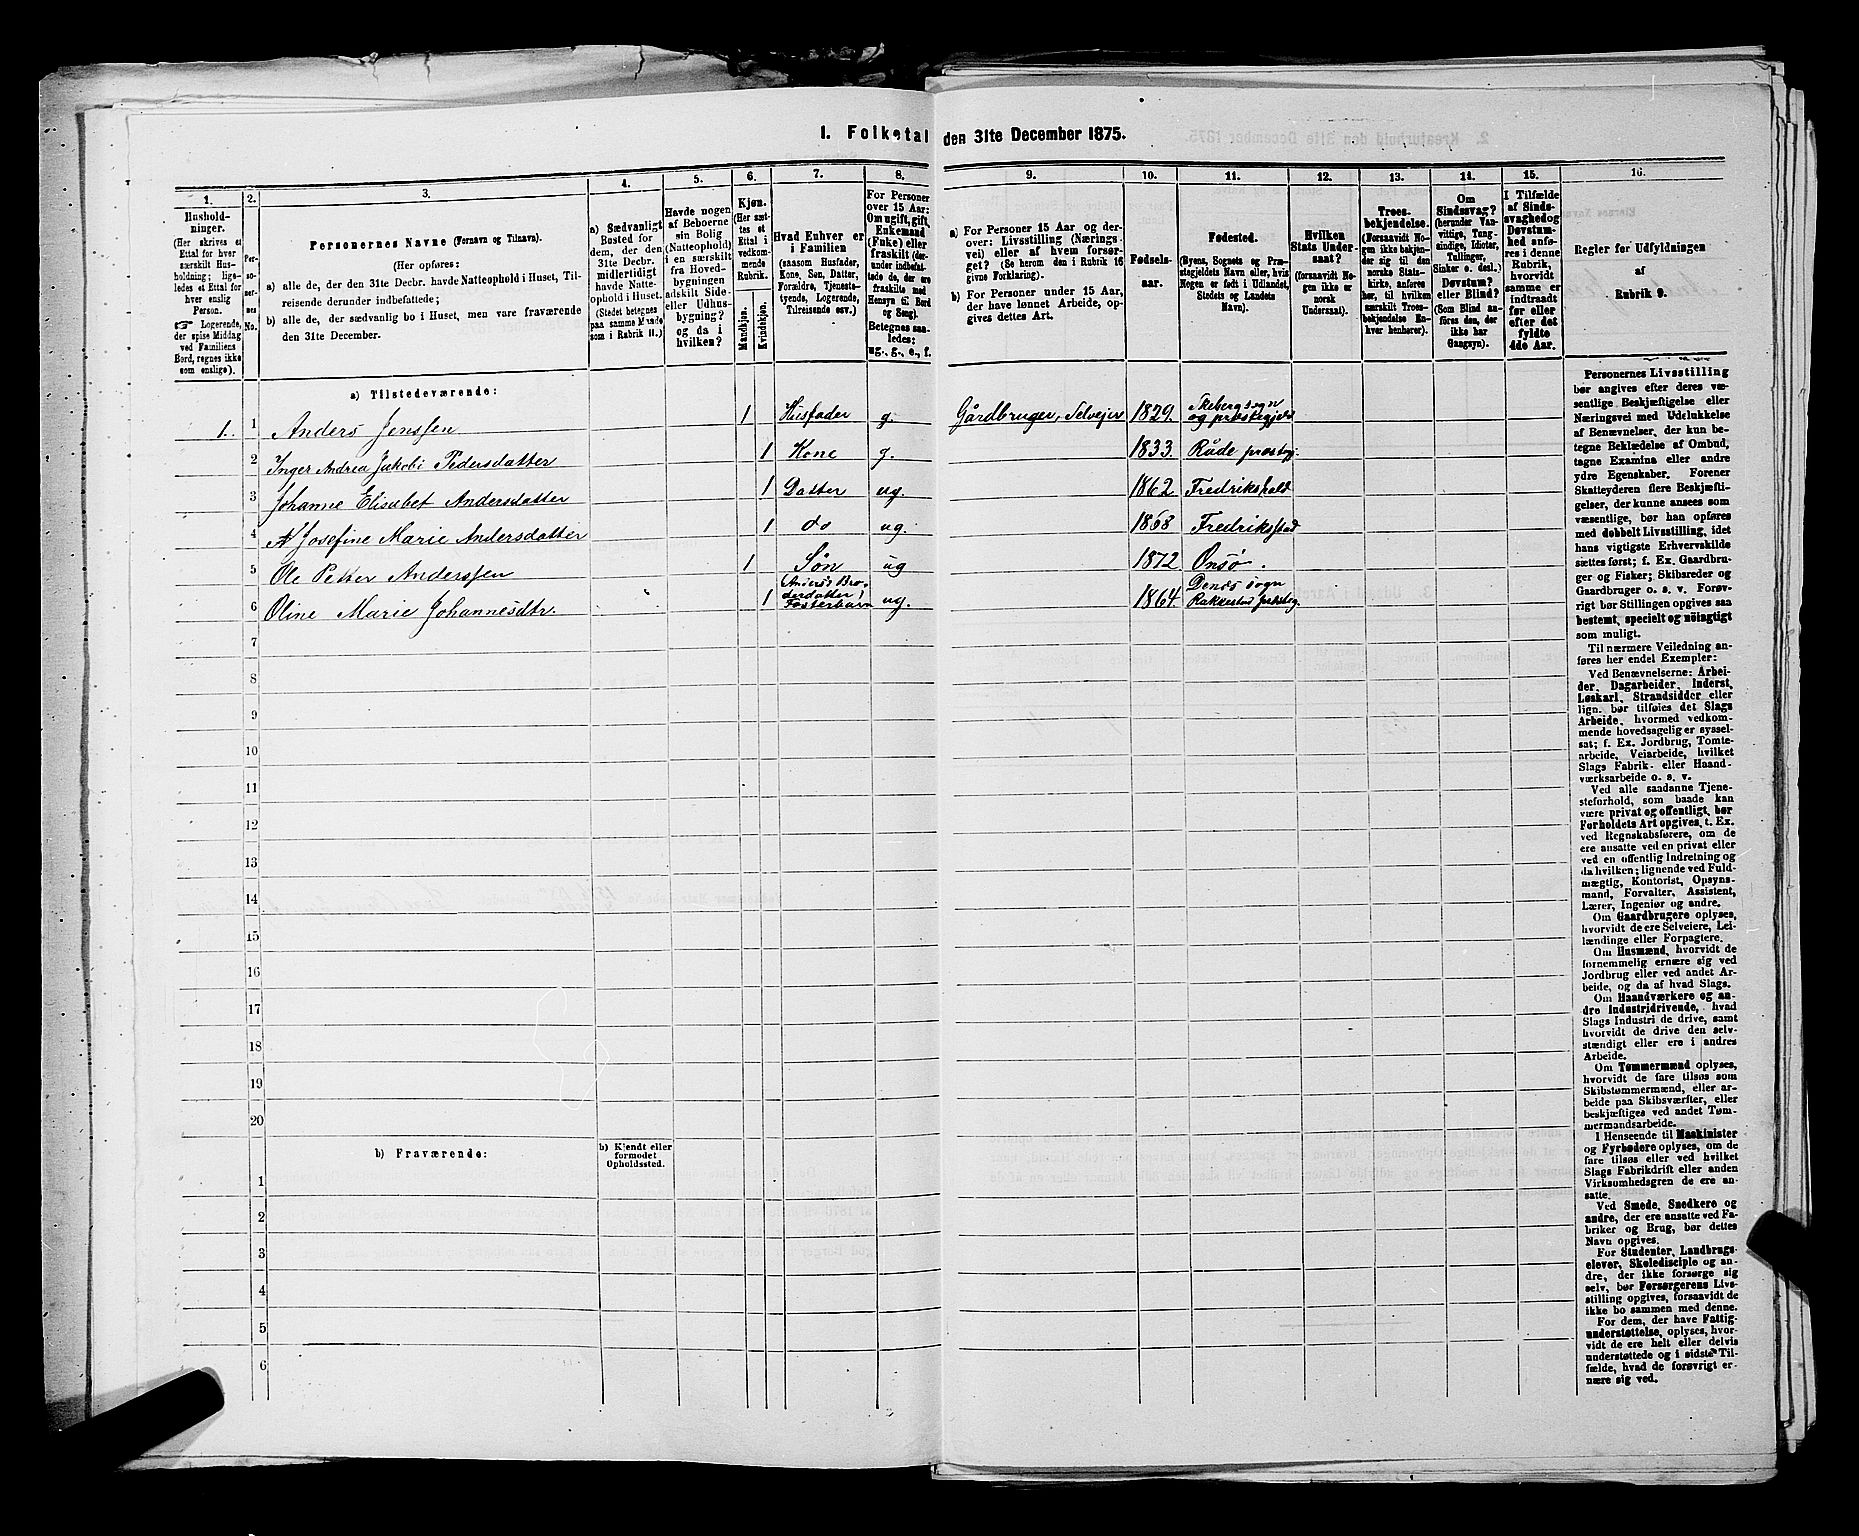 1. Folketal den 31te December 1875.
1.
Hushold-
ninger.
(Her skrives et
Ettal for hver
særskilt Hus-
holdning; lige-
ledes et Ettal for
hver enslig
Person.
☞ Logerende,
der spise Middag
ved Familiens
Bord, regnes ikke
som enslige).
2.
Per-
so-
ner-
nes
No.
3.
Personernes Navne (Fornavn og Tilnavn).
(Her opføres:
a) alle de, der den 31te Decbr. havde Natteophold i Huset, Til-
reisende derunder indbefattede;
b) alle de, der sædvanlig bo i Huset, men vare fraværende
den 31te December.
4.
a) Sædvanligt
Bosted for
dem, der den
31te Decbr.
midlertidigt
havde Natte-
ophold i Huset.
(Stedet betegnes
paa samme Maade
som i Rubrik 11.)
5.
Havde nogen
af Beboerne
sin Bolig
(Natteophold)
i en særskilt
fra Hoved-
bygningen
adskilt Side-
eller Udhus-
bygning?
og da i
hvilken?
6.
Kjøn.
(Her sæt-
tes et
Ettal i
vedkom-
mende
Rubrik.
Mandkjøn.
Kvindekjøn.
7.
Hvad Enhver er
i Familien
(saasom Husfader,
Kone, Søn, Datter,
Forældre, Tjeneste-
tyende, Logerende,
Tilreisende osv.)
8.
For Personer
over 15 Aar:
Om ugift, gift,
Enkemand
(Enke) eller
fraskilt (der-
under indbefat-
tede de, der ere
fraskilte med
Hensyn til Bord
og Seng).
Betegnes saa-
ledes:
ug., g., e., f.
9.
a) For Personer 15 Aar og der-
over: Livsstilling (Nærings-
vei) eller af hvem forsør-
get? (Se herom den i Rubrik 16
givne Forklaring).
b) For Personer under 15 Aar,
der have lønnet Arbeide, op-
gives dettes Art.
10.
Fødsels-
aar.
11.
Fødested.
(Byens, Sognets og Præ-
stegjeldets Navn eller, hvis
Nogen er født i Udlandet,
Stedets og Landets
Navn).
12.
Hvilken
Stats Under-
saat?
(forsaavidt No-
gen ikke er
norsk
Undersaat).
13.
Troes-
bekjendelse.
(Forsaavidt No-
gen ikke bekjen-
der sig til den
norske Stats-
kirke, anføres
her, til hvilken
særskilt Troes-
bekjendelse En-
hver henhører).
14.
Om
Sindssvag?
(herunder Van-
vittige, Tung-
sindige, Idioter,
Tullinger,
Sinker o. desl.)
Døvstum?
eller Blind?
(Som Blind an-
føres den, der
ikke har
Gangsyn).
15.
I Tilfælde
af Sinds-
svaghed og
Døvstum-
hed anfø-
res i denne
Rubrik,
hvorvidt
samme er
indtraadt
før eller
efter det
fyldte
4de Aar.
16.
Regler for Udfyldningen
af
Rubrik 9.
a) Tilstedeværende:
1. 1 Anders Jenssen 1 Husfader g. Gårdbruger, Selvejer 1829. Skebergsogn og præstegjeld
2 Inger Andrea Jakobi Pedersdatter 1 Kone g. 1833. Råde præstg.
3 Johanne Elisabet Andersdatter 1 Datter ug. 1862. Fredrikshald
4 Josefine Marie Andersdatter 1 do ug. 1868 Fredrikstad
5 Ole Petter Anderssen 1 Søn ug 1872 Onsø.
6 Oline Marie Johannesdtr. 1 Anders Bro-derdatter, Fosterbarn ug. 1864. sogn Rakkestad præstg.
7
8
9
10
11
12
13
14
15
16
17
18
19
20
b) Fraværende:
b) Kjendt eller
formodet
Opholdssted.
1
2
3
4
5
6
Personernes Livsstilling
bør angives efter deres væ-
sentlige Beskjæftigelse eller
Næringsvei med Udelukkelse
af Benævnelser, der kun be-
tegne Beklædelse af Ombud,
tagne Examina eller andre
ydre Egenskaber. Forener
Skatteyderen flere Beskjæfti-
gelser, der kunne ansees som
væsentlige, bør han opføres
med dobbelt Livsstilling, idet
hans vigtigste Erhvervskilde
sættes først; f. Ex. Gaardbru-
ger og Fisker; Skibsreder og
Gaardbruger o. s. v. Forøv-
rigt bør Stillingen opgives saa
bestemt, specielt og nøiagtigt
som muligt.
Til nærmere Veiledning an-
føres her endel Exempler:
Ved Benævnelserne: Arbei-
der, Dagarbeider, Inderst,
Løskarl, Strandsidder eller
lign. bør tilføies det Slags
Arbeide, hvormed vedkom-
mende hovedsagelig er syssel-
sat; f. Ex. Jordbrug, Tomte-
arbeide, Veiarbeide, hvilket
Slags Fabrik- eller Haand-
værksarbeide o. s. v.
Ved alle saadanne Tjene-
steforhold, som baade kan
være privat og offentligt, bør
Forholdets Art opgives, t. Ex.
ved Regnskabsførere, om de
ere ansatte ved en privat eller
ved en offentlig Indretning og
da hvilken; lignende ved Fuld-
mægtig, Kontorist, Opsyns-
mand, Forvalter, Assistent,
Lærer, Ingeniør og andre.
Om Gaardbrugere oplyses,
hvorvidt de ere Selveiere, Lei-
lændinge eller Forpagtere.
Om Husmænd, hvorvidt de
fornemmelig ernære sig ved
Jordbrug eller ved andet Ar-
beide, og da af hvad Slags.
Om Haandværkere og an-
dre Industridrivende, hvad
Slags Industri de drive, samt
hvorvidt de drive den selv-
stændigt eller ere i andres
Arbeide.
Om Tømmermænd oplyses,
hvorvidt de fare tilsøs som
Skibstømmermænd, eller ar-
beide paa Skibsværfter, eller
beskjæftiges ved andet Tøm-
mermandsarbeide.
I Henseende til Maskinister
og Fyrbødere oplyses, om de
fare tilsøs eller ved hvilket
Slags Fabrikdrift eller anden
Virksomhedsgren de ere an-
satte.
Ved Smede, Snedkere og
andre, der ere ansatte ved Fa-
briker og Brug, bør dettes
Navn opgives.
For Studenter, Landbrugs-
elever, Skoledisciple og an-
dre, der ikke forsørge sig
selv, bør Forsørgerens Livs-
stilling opgives, forsaavidt de
ikke bo sammen med denne.
For dem, der have Fattig-
understøttelse, oplyses, hvor-
vidt de ere helt eller delvis
understøttede og i sidste Til-
fælde, hvad de forøvrigt er-
nære sig ved.